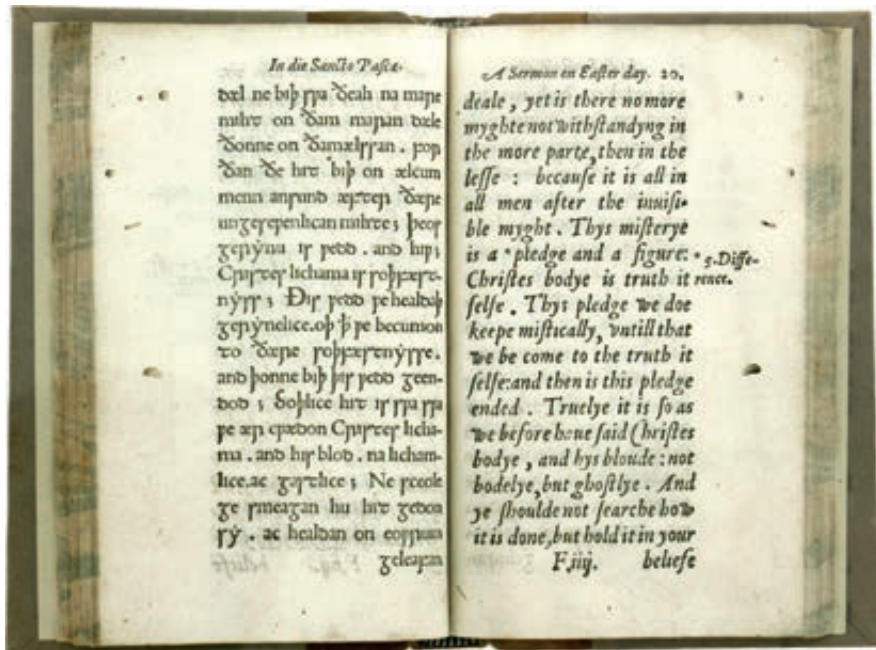 In die Sancto Pascæ.
dæl ne biþ sƿa ðeah na mare
mihte on ðam maran dæle
ðonne on ðamælssan. for
ðan ðe hit biþ on ælcum
menn ansund æfter ðære
ungeseƿenlican mihte; þeos
gerẏnu is ƿedd. and hiƿ;
Cristes lichama is soþfæst-
nẏss; Ðis ƿedd ƿe healdaþ
gerẏnelice.oþ ꝥ ƿe becumon
to ðære soþfæstnẏsse.
and þonne biþ þis ƿedd geen-
dod; Soþlice hit is sƿa sƿa
ƿe ær cƿædon Cristes licha-
ma. and his blod. na licham-
lice.ac gastlice; Ne sceole
ge smeagan hu hit gedon
sẏ. ac healdan on eoƿrum
geleafan
A Sermon on Easter day. 20.
deale, yet is there no more
myghte notwithstandyng in
the more parte, then in the
lesse : because it is all in
all men after the inuisi-
ble myght. Thys misterye
is a * pledge and a figure:
Christes bodye is truth it
selfe. Thys pledge we doe
keepe mistically, vntill that
we be come to the truth it
selfe:and then is this pledge
ended. Truelye it is so as
we before haue said Christes
bodye, and hys bloude: not
bodelye, but ghostlye. And
ye shoulde not searche how
it is done, but hold it in your
F.iiij. beliefe
* 5. Diffe-
rence.